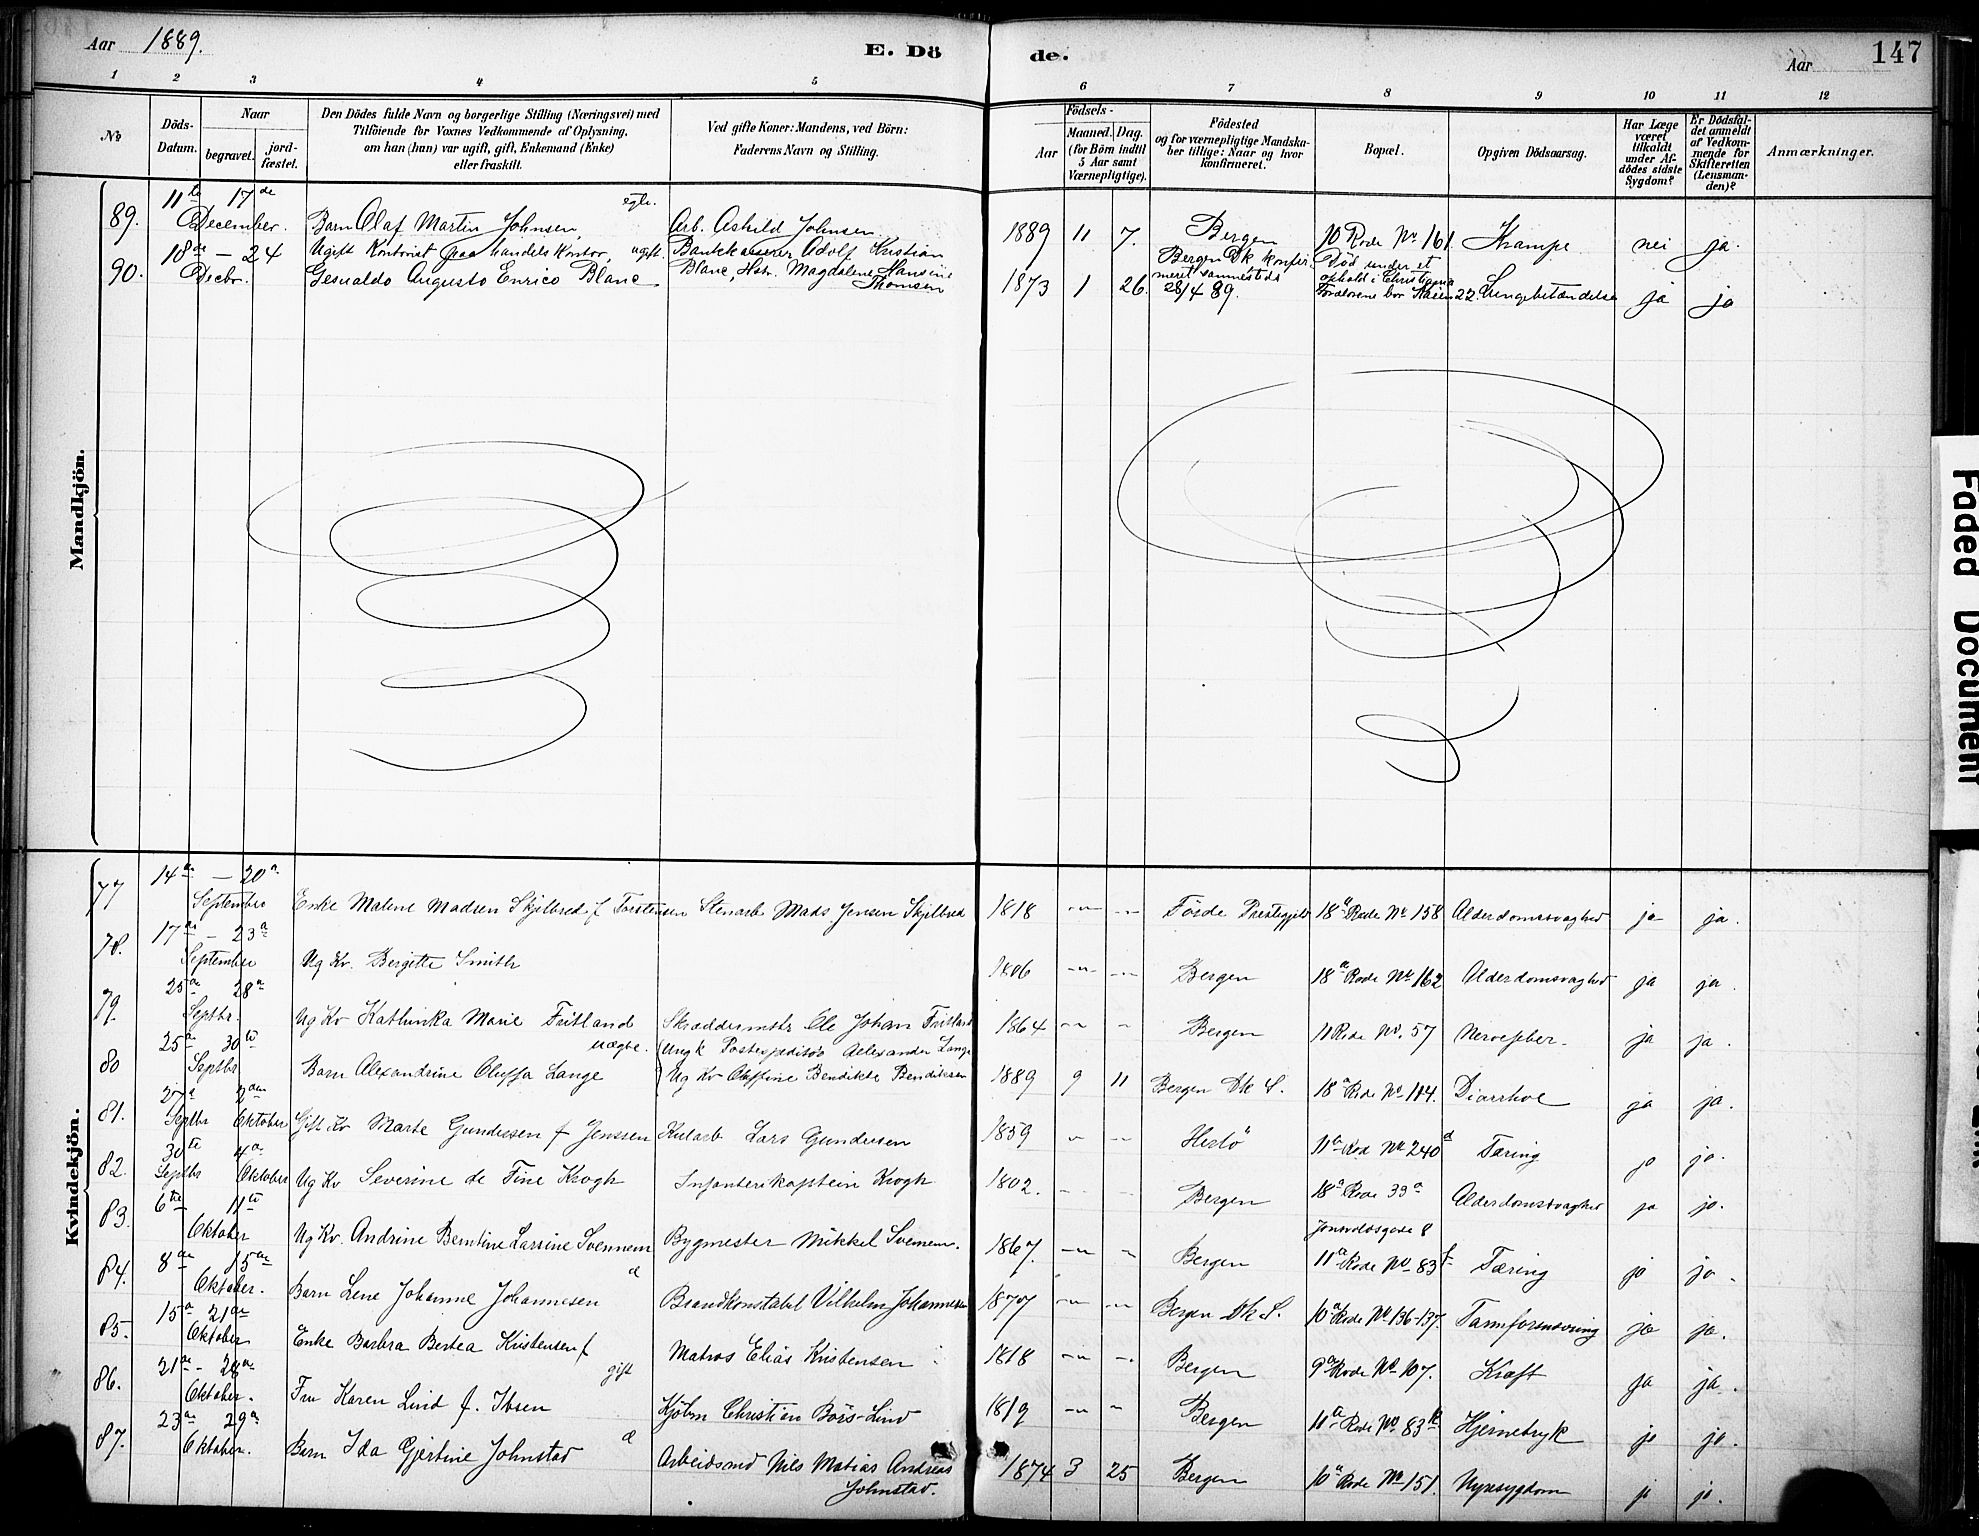 Aar 1889. E. Dö de. Aar 147
1 2 3 4 5 6 7 8 9 10 11 12
No
Döds-Datum.
Naar
begravet.
jord-fæstet.
Den Dödes fulde Navn og borgerlige Stilling (Næringsvei) med
Tilföiende for Voxnes Vedkommende af Oplysning,
om han (hun) var ugift, gift, Enkemand (Enke)
eller fraskilt.
Ved gifte Koner: Mandens, ved Börn:
Faderens Navn og Stilling.
Födsels-
Aar
Maaned. Dag.
(for Börn indtil
5 Aar samt
Værnepligtige).
Födested
og for værnepligtige Mandska-
ber tillige: Naar og hvor
konfirmeret.
Bopæl.
Opgiven Dödsaarsag.
Har Læge
været
tilkaldt
under Af-
dödes sidste
Sygdom?
Er Dödsfal-
det anmeldt
af Vedkom-
mende for
Skifteretten
(Lensman-
den)?
Anmærkninger.
Mandkjön.
11te 17de egte.
89. December. Barn Olaf Martin Johnsen Arb. Askild Johnsen 1889 11 7. Bergen 10 Rode No 161 Krampe nei ja.
18de - 24 Ugift Kontorist paa handels Kontor, ugift. Bankkasserer Adolf Kristian Bergen Dk konfir- Död under et
90. Decbr. Gesualdo Augusto Enrico Blanc Blanc, Hstr. Magdalene Hansine Thomsen 1873 1 26. meret sammesteds 28/4 89. ophold i Christiania Forældrene bor 22. Lungebetændelse ja ja
Kvindekjön.
14de - 20de
77 September Enke Malene Madsen Skjilbred f Torstensen Stenarb Mads Jensen Skjilbred 1818 -"- -"- Förde Prestegjeld 18de Rode No 158 Alderdomssvaghed ja ja.
17de - 23de
78. September Ug Kv. Bergitte Smith 1806 -"- -"- Bergen 18de Rode No 162 Alderdomsvaghed ja ja.
25de 28de
79. Septbr. Ug Kv Kathinka Marie Fritland Skræddermstr Ole Johan Fritland 1864 -"- " Bergen 11 Rode No. 57 Nervefeber. ja ja.
25de 30te uægte. Ungk Postexpeditör Alexander Lange
80 Septbr Barn Alexandrine Oluffa Lange Ug Kv Oluffine Bendikte Bendiktsen 1889 9 11 Bergen Dk S. 18de Rode No 114. Diarrhoe ja ja.
27de 2den
81. Septbr Oktober Gift Kv Marte Gundersen f Jenssen Kularb Lars Gundersen 1859 " -"- Herlö 11de Rode No 240d Tæring ja ja.
30te 4de
82. Septbr Oktober Ug Kv Severine de Fine Krogh Infanterikaptein Krogh 1802. Bergen 18de Rode 33a Alderdomssvaghed ja ja.
6te 11te Jonsvoldsgade 8
83. Oktober Ug Kv. Andrine Berntine Larsine Svennem Bygmester Mikkel Svennem. 1867. -"- " Bergen 11de Rode No 83f Tæring ja ja.
8de 15de
84. Oktober. Barn Lene Johanne Johannesen Brandkonstabel Vilhelm Johannesen 1877 -"- -"- Bergen Dk S. 10de Rode No 136-137. Tarmforsnevring ja ja.
15de 21de
85. Oktober Enke Barbra Bertea Kristensen f Matros Elias Kristensen 1818 -"- -"- Bergen 9de Rode No 107. Kræft ja ja.
21de - 28de gift
86. Oktober. Fru Karen Lind f. Ibsen Kjöbm Christien Börs-Lind 1819 -"- " Bergen 11de Rode No 83k Hjernetryk ja ja.
23de 29de
87. Oktober. Barn Ida Gjertine Johnstad Arbeidsmd Nils Matias Andreas Johnstad. 1874 3 25 Bergen 10de Rode No 151. Nyresygdom ja ja.
Faded Document